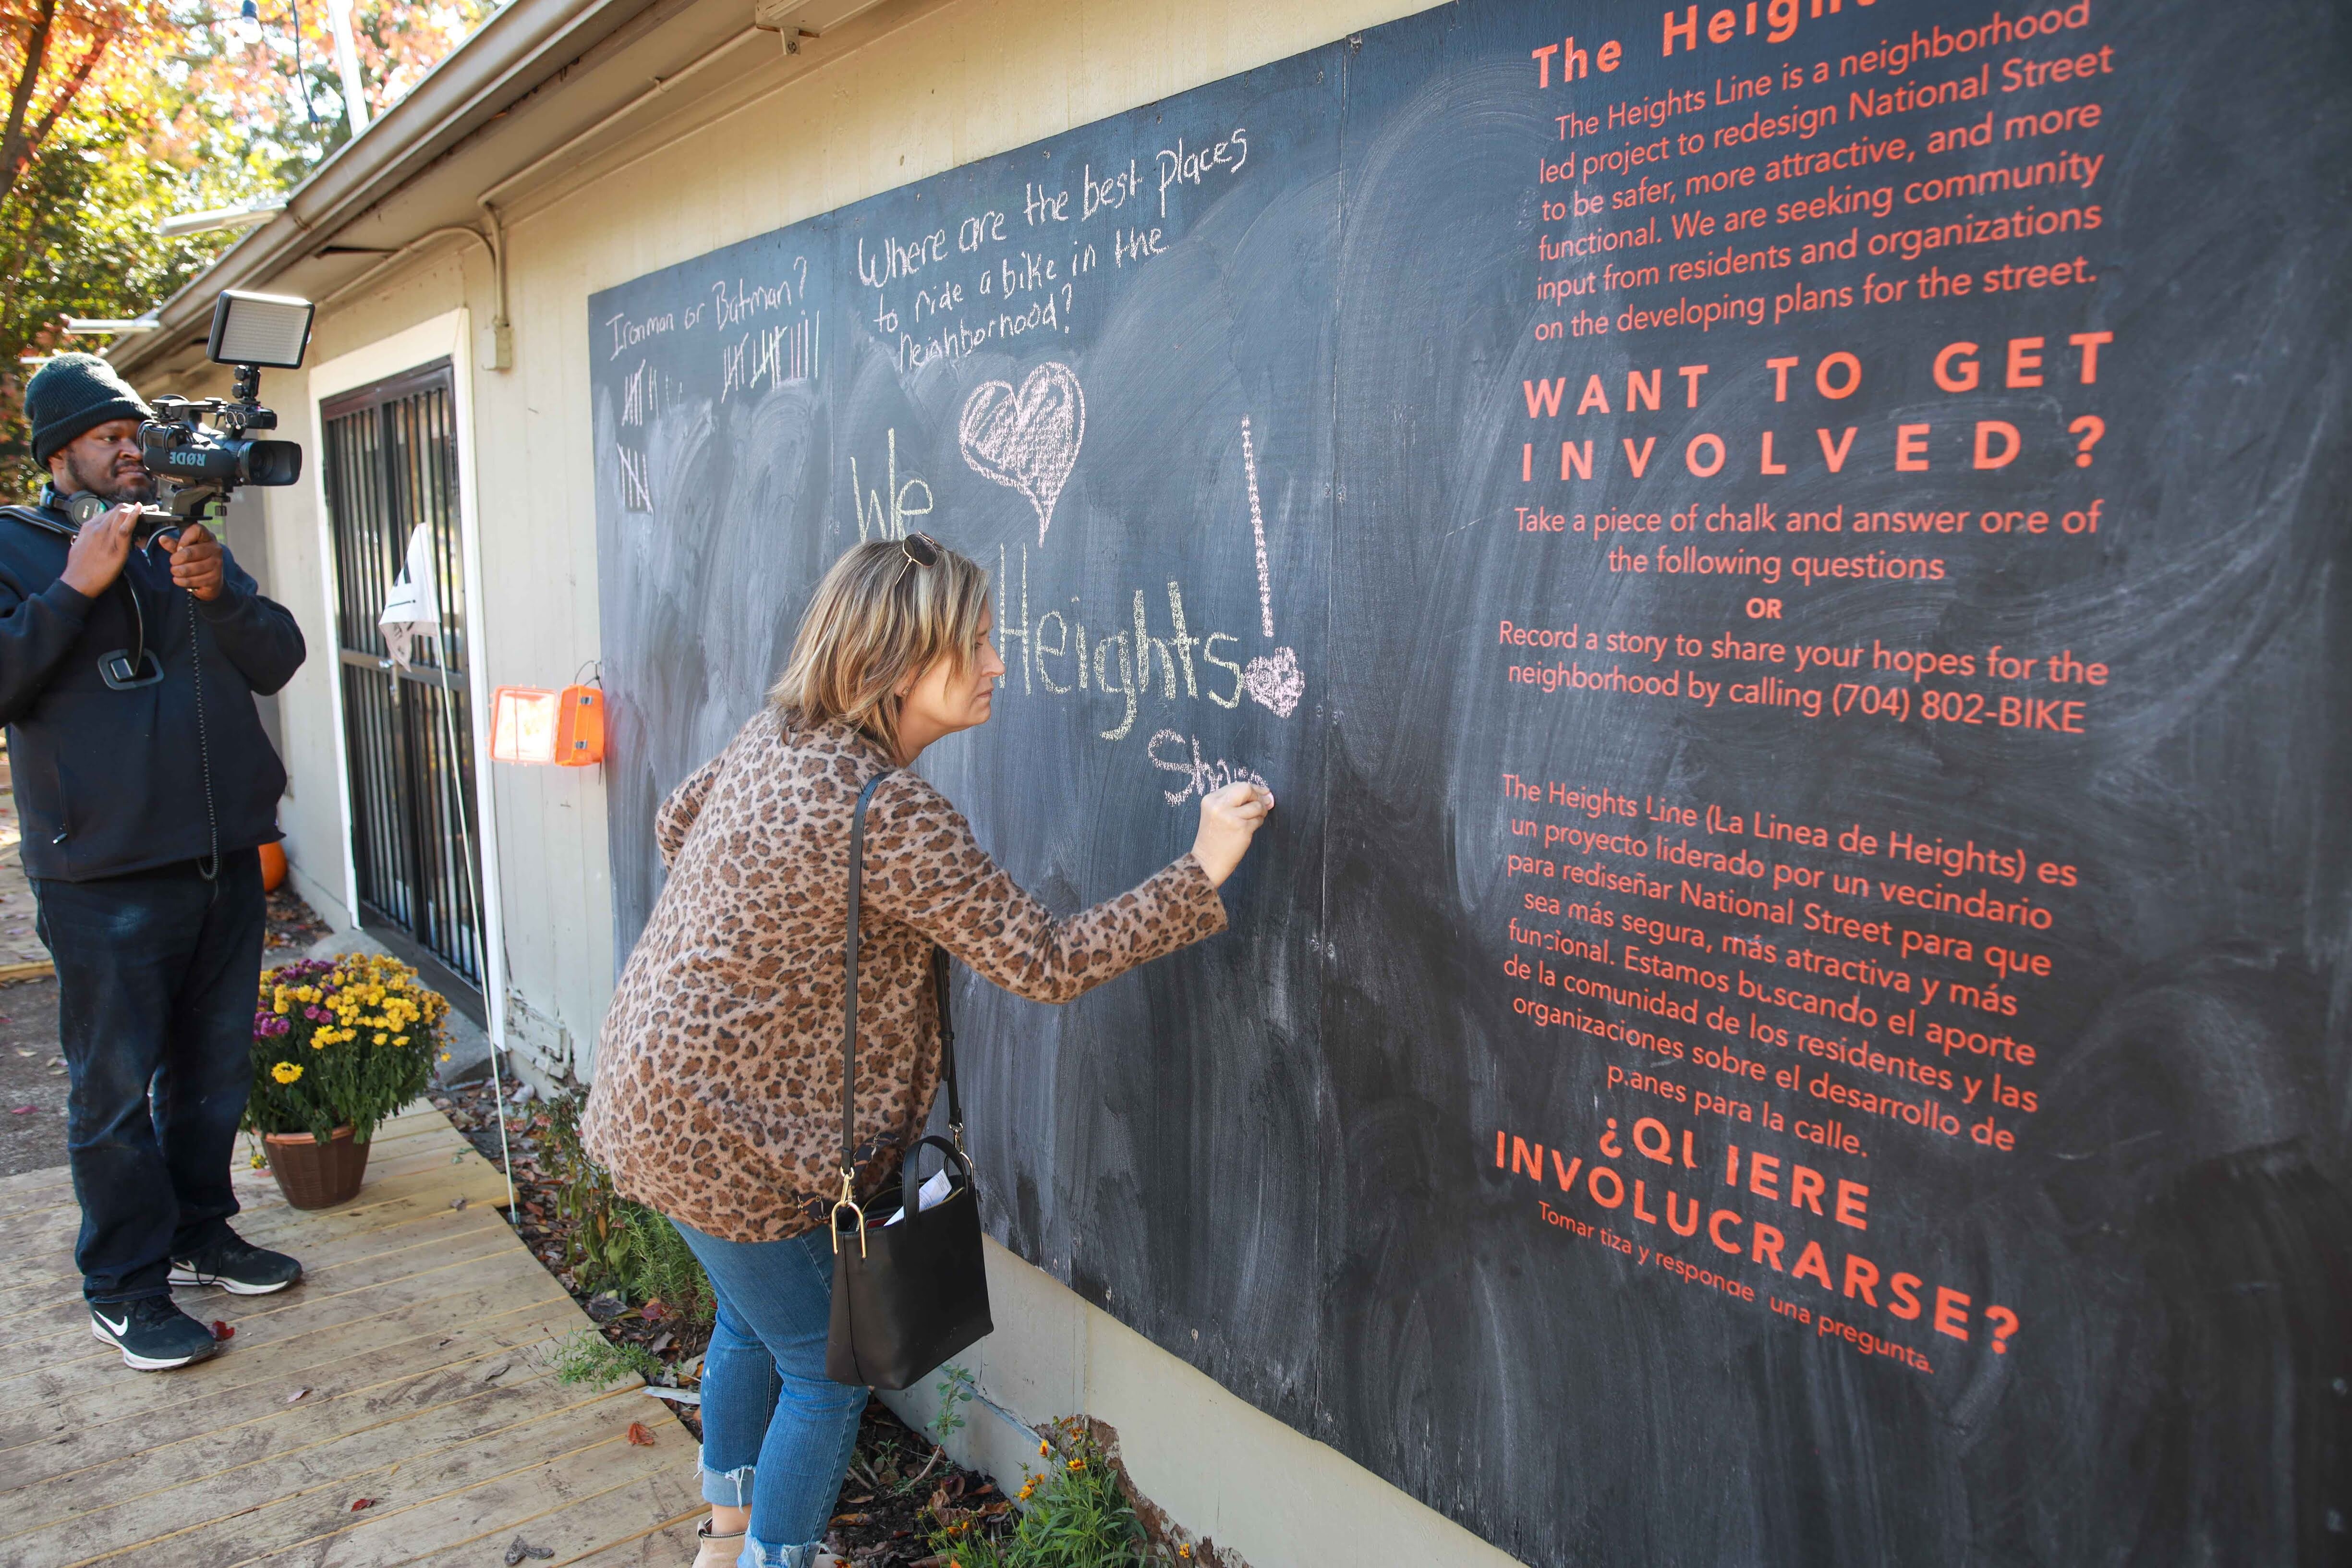 Ironman or Batman?
Where are the best places
to ride a bike in the
neighborhood?
We
Heights!
RØDE
The Heights Line is a neighborhood
led project to redesign National Street
to be safer, more attractive, and more
functional. We are seeking community
input from residents and organizations
on the developing plans for the street.
WANT TO GET
INVOLVED?
Take a piece of chalk and answer one of
the following questions
OR
Record a story to share your hopes for the
neighborhood by calling (704) 802-BIKE
The Heights Line (La Linea de Heights) es
un proyecto liderado por un vecindario
para rediseñar National Street para que
sea más segura, más atractiva y más
funcional. Estamos buscando el aporte
de la comunidad de los residentes y las
organizaciones sobre el desarrollo de
p.anes para la calle.
¿QUIERE
INVOLUCRARSE?
Tomar tiza y responde una pregunta.